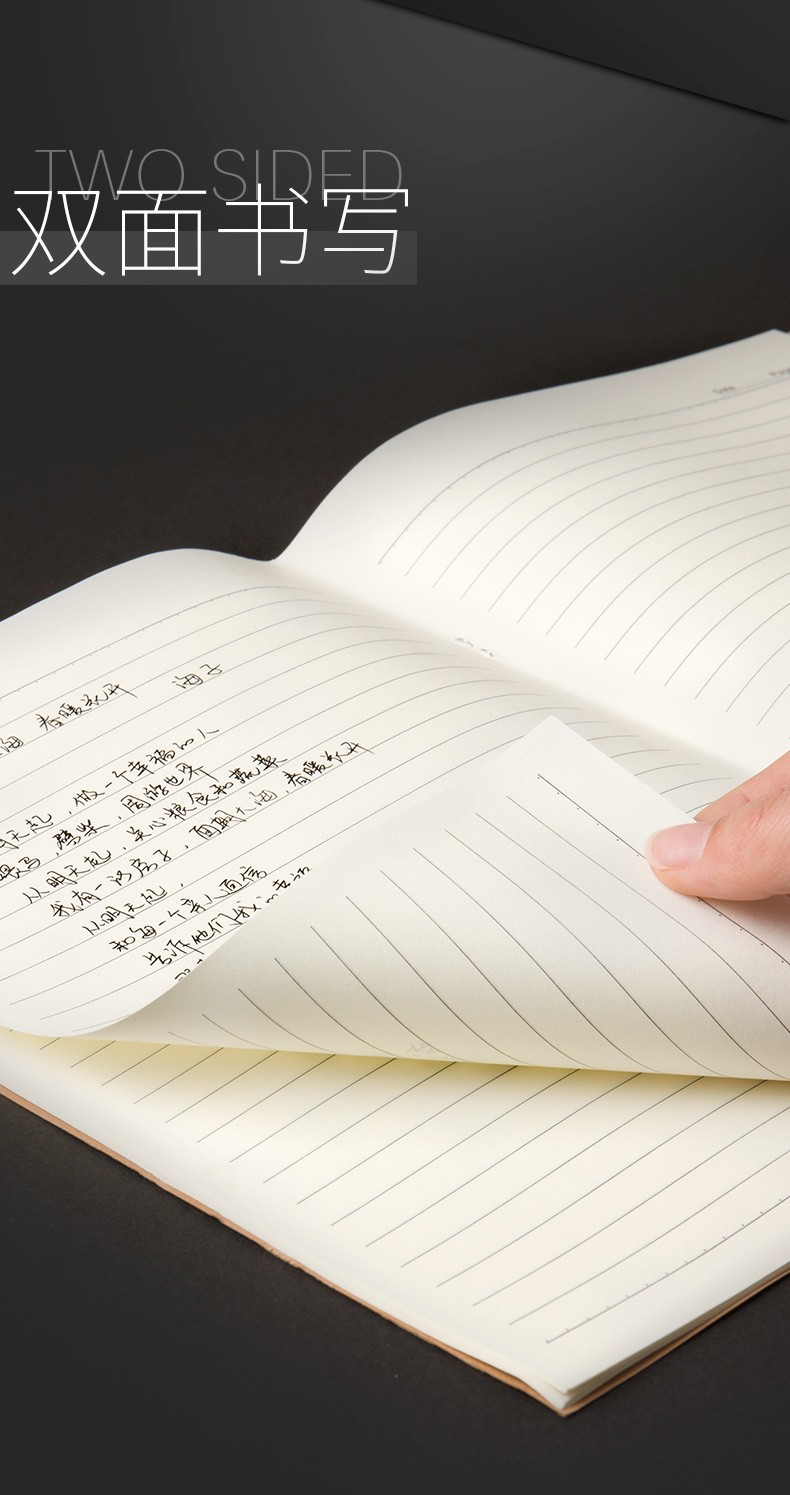 TWO SIDED
双面书写
Date Page
海 春暖花开 海子
明天起，做一个幸福的人
喂马，劈柴，周游世界
从明天起，关心粮食和蔬菜
我有一所房子，面朝大海，春暖花开
从明天起，
和每一个亲人通信
告诉他们我的幸福